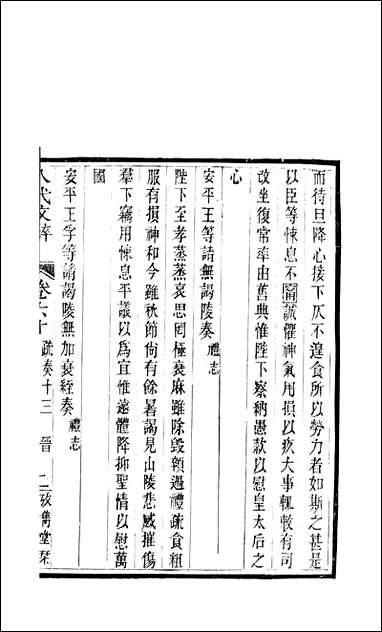 而待旦降心接下仄不遑食所以勞力者如斯之甚是
以臣等悚息不寧誠懼神氣用損以疚大事輒敕有司
改坐復常率由舊典惟陛下察納愚款以慰皇太后之
心
安平王等請無謁陵奏 禮志
陛下至孝蒸蒸哀思罔極衰麻雖除毀顇過禮疏食粗
服有損神和今雖秋節尙有餘暑謁見山陵悲感摧傷
羣下竊用悚息平議以爲宜惟遠體降抑聖情以慰萬
國
安平王孚等請謁陵無加衰絰奏 禮志
八代文粹 卷六十 疏奏十三 晉 攷雋堂栞